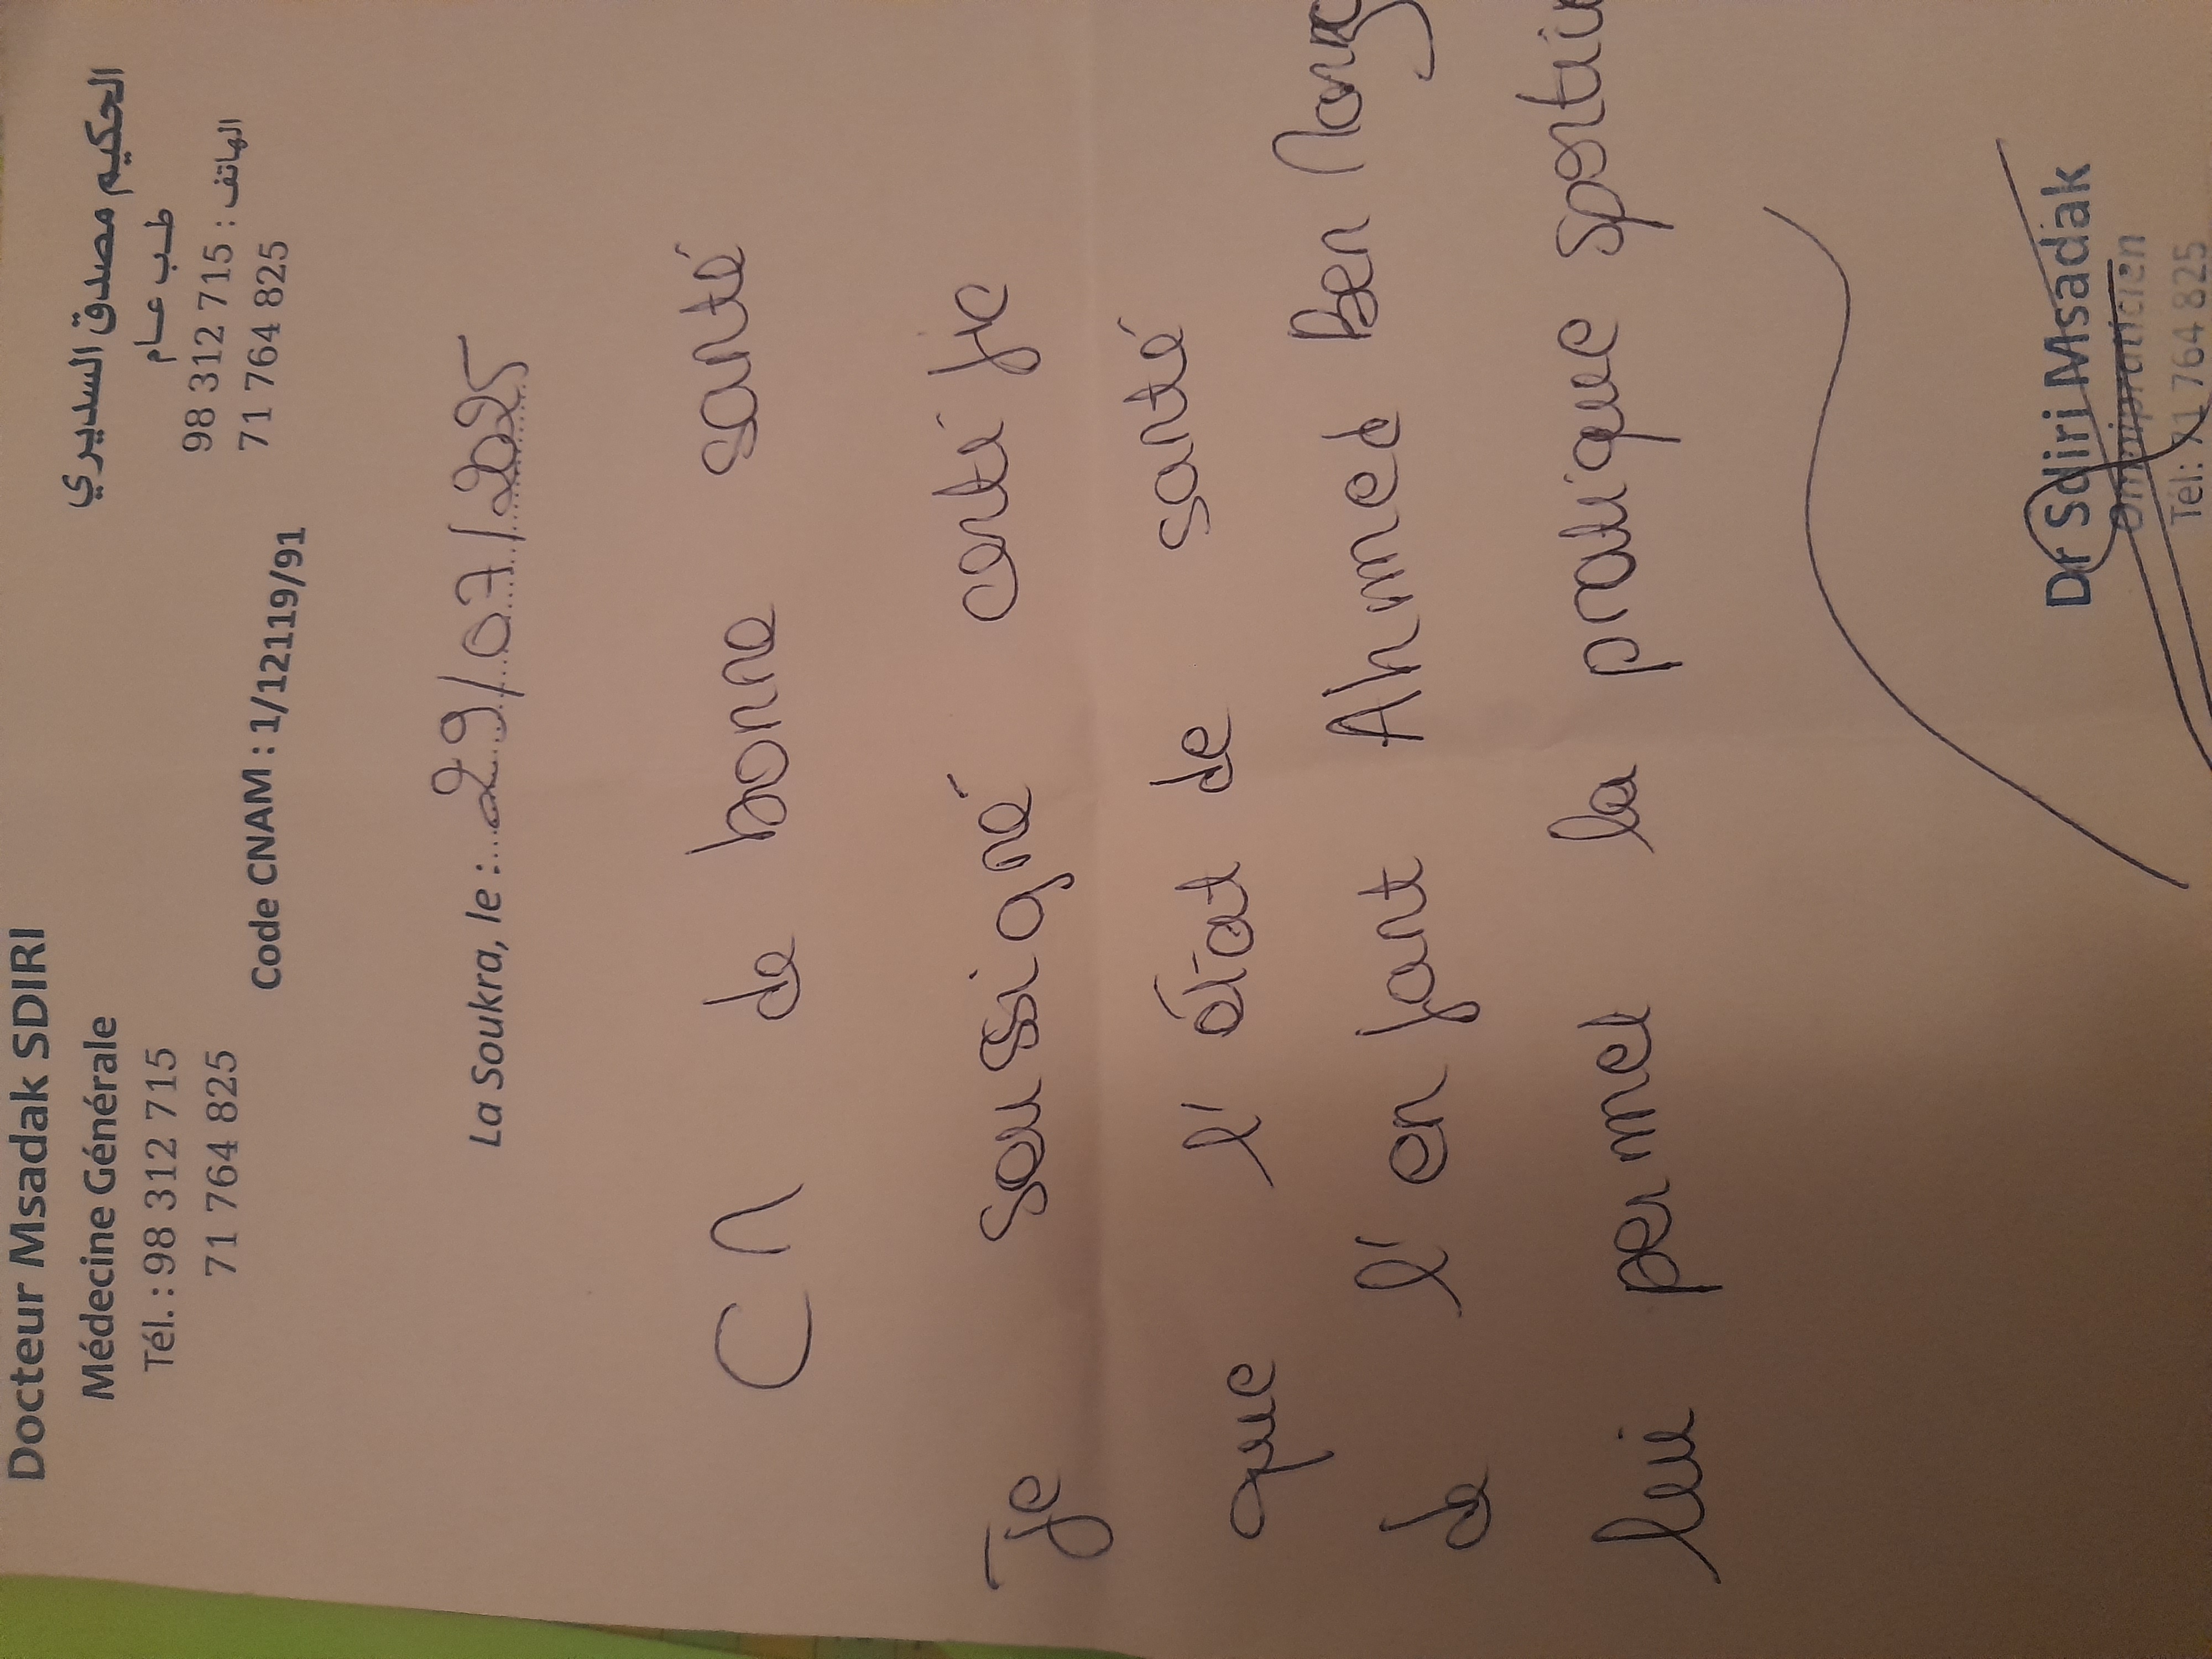 Docteur Msadak SDIRI
Médecine Générale
Tél. : 98 312 715
71 764 825
الحكيم مصدق السديري
طب عام
الهاتف : 98 312 715
71 764 825
Code CNAM : 1/12119/91
La Soukra, le : 29/07/2025
CM de bonne santé
Je soussigné certifie
que l'état de santé
de l'enfant Ahmed Ben
lui permet la pratique
Dr Sdiri Msadak
Omnipraticien
Tél: 71 764 825